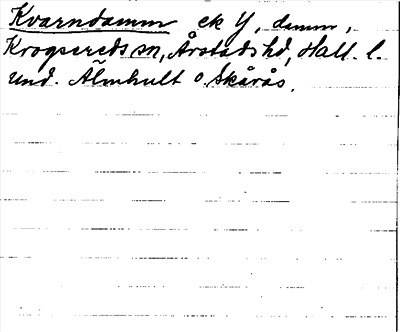 Kvarndamm ek Y, damm,
Krogsereds sn, Årstads hd, Hall. l.
Und. Älmhult o. Skårås.